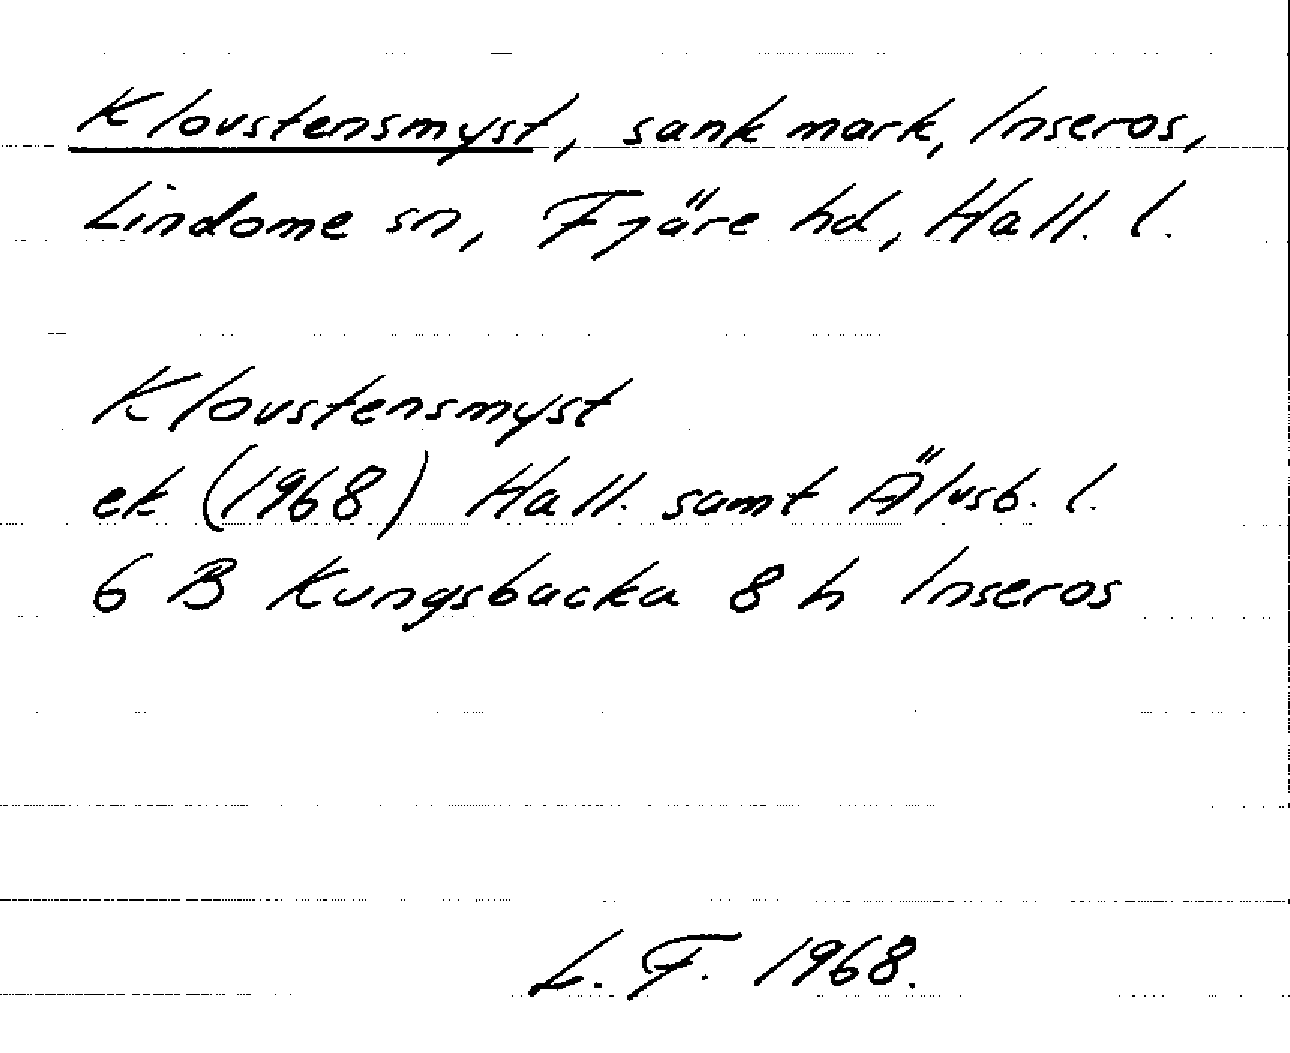 Klovstensmyst, sank mark, Inseros,
Lindome sn, Fjäre hd, Hall. l.
Klovstensmyst
ek (1968) Hall. samt Älvsb. l.
6 B Kungsbacka 8 h Inseros
L. F. 1968.